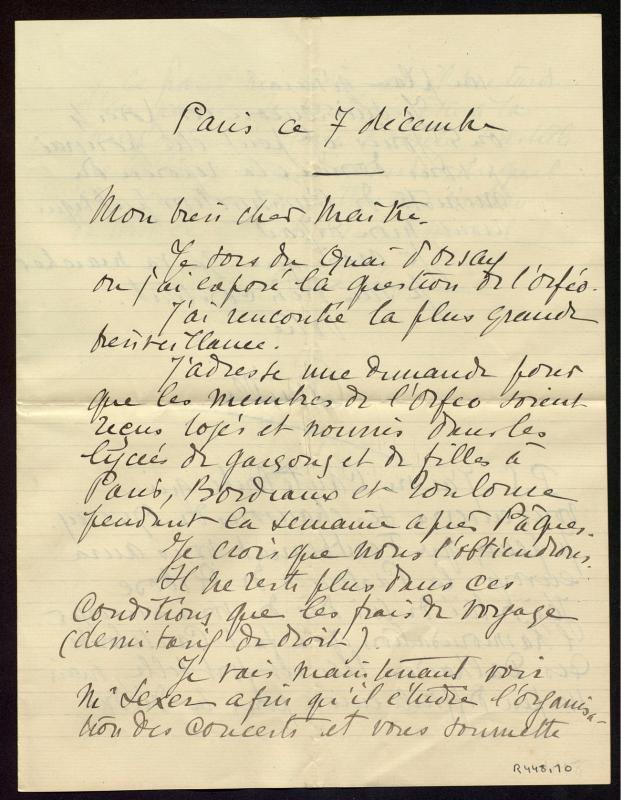 Paris ce 7 décembre
Mon bien cher Maître.
Je sors du Quai d'orsay
où j'ai exposé la question de l'orféo.
J'ai rencontré la plus grande
bienveillance.
J'adresse une demande pour
que les membres de l'Orfeo soient
reçus logés et nourris dans les
lycées de garçons et de filles à
Paris, Bordeaux et Toulouse
pendant la semaine après Pâques.
Je crois que nous l'obtiendrons.
Il ne reste plus dans ces
conditions que les frais de voyage
(demi tarif de droit)
Je vais maintenant voir
Mr afin qu'il étudie l'organisa-
tion des concerts et vous soumette
R448,10